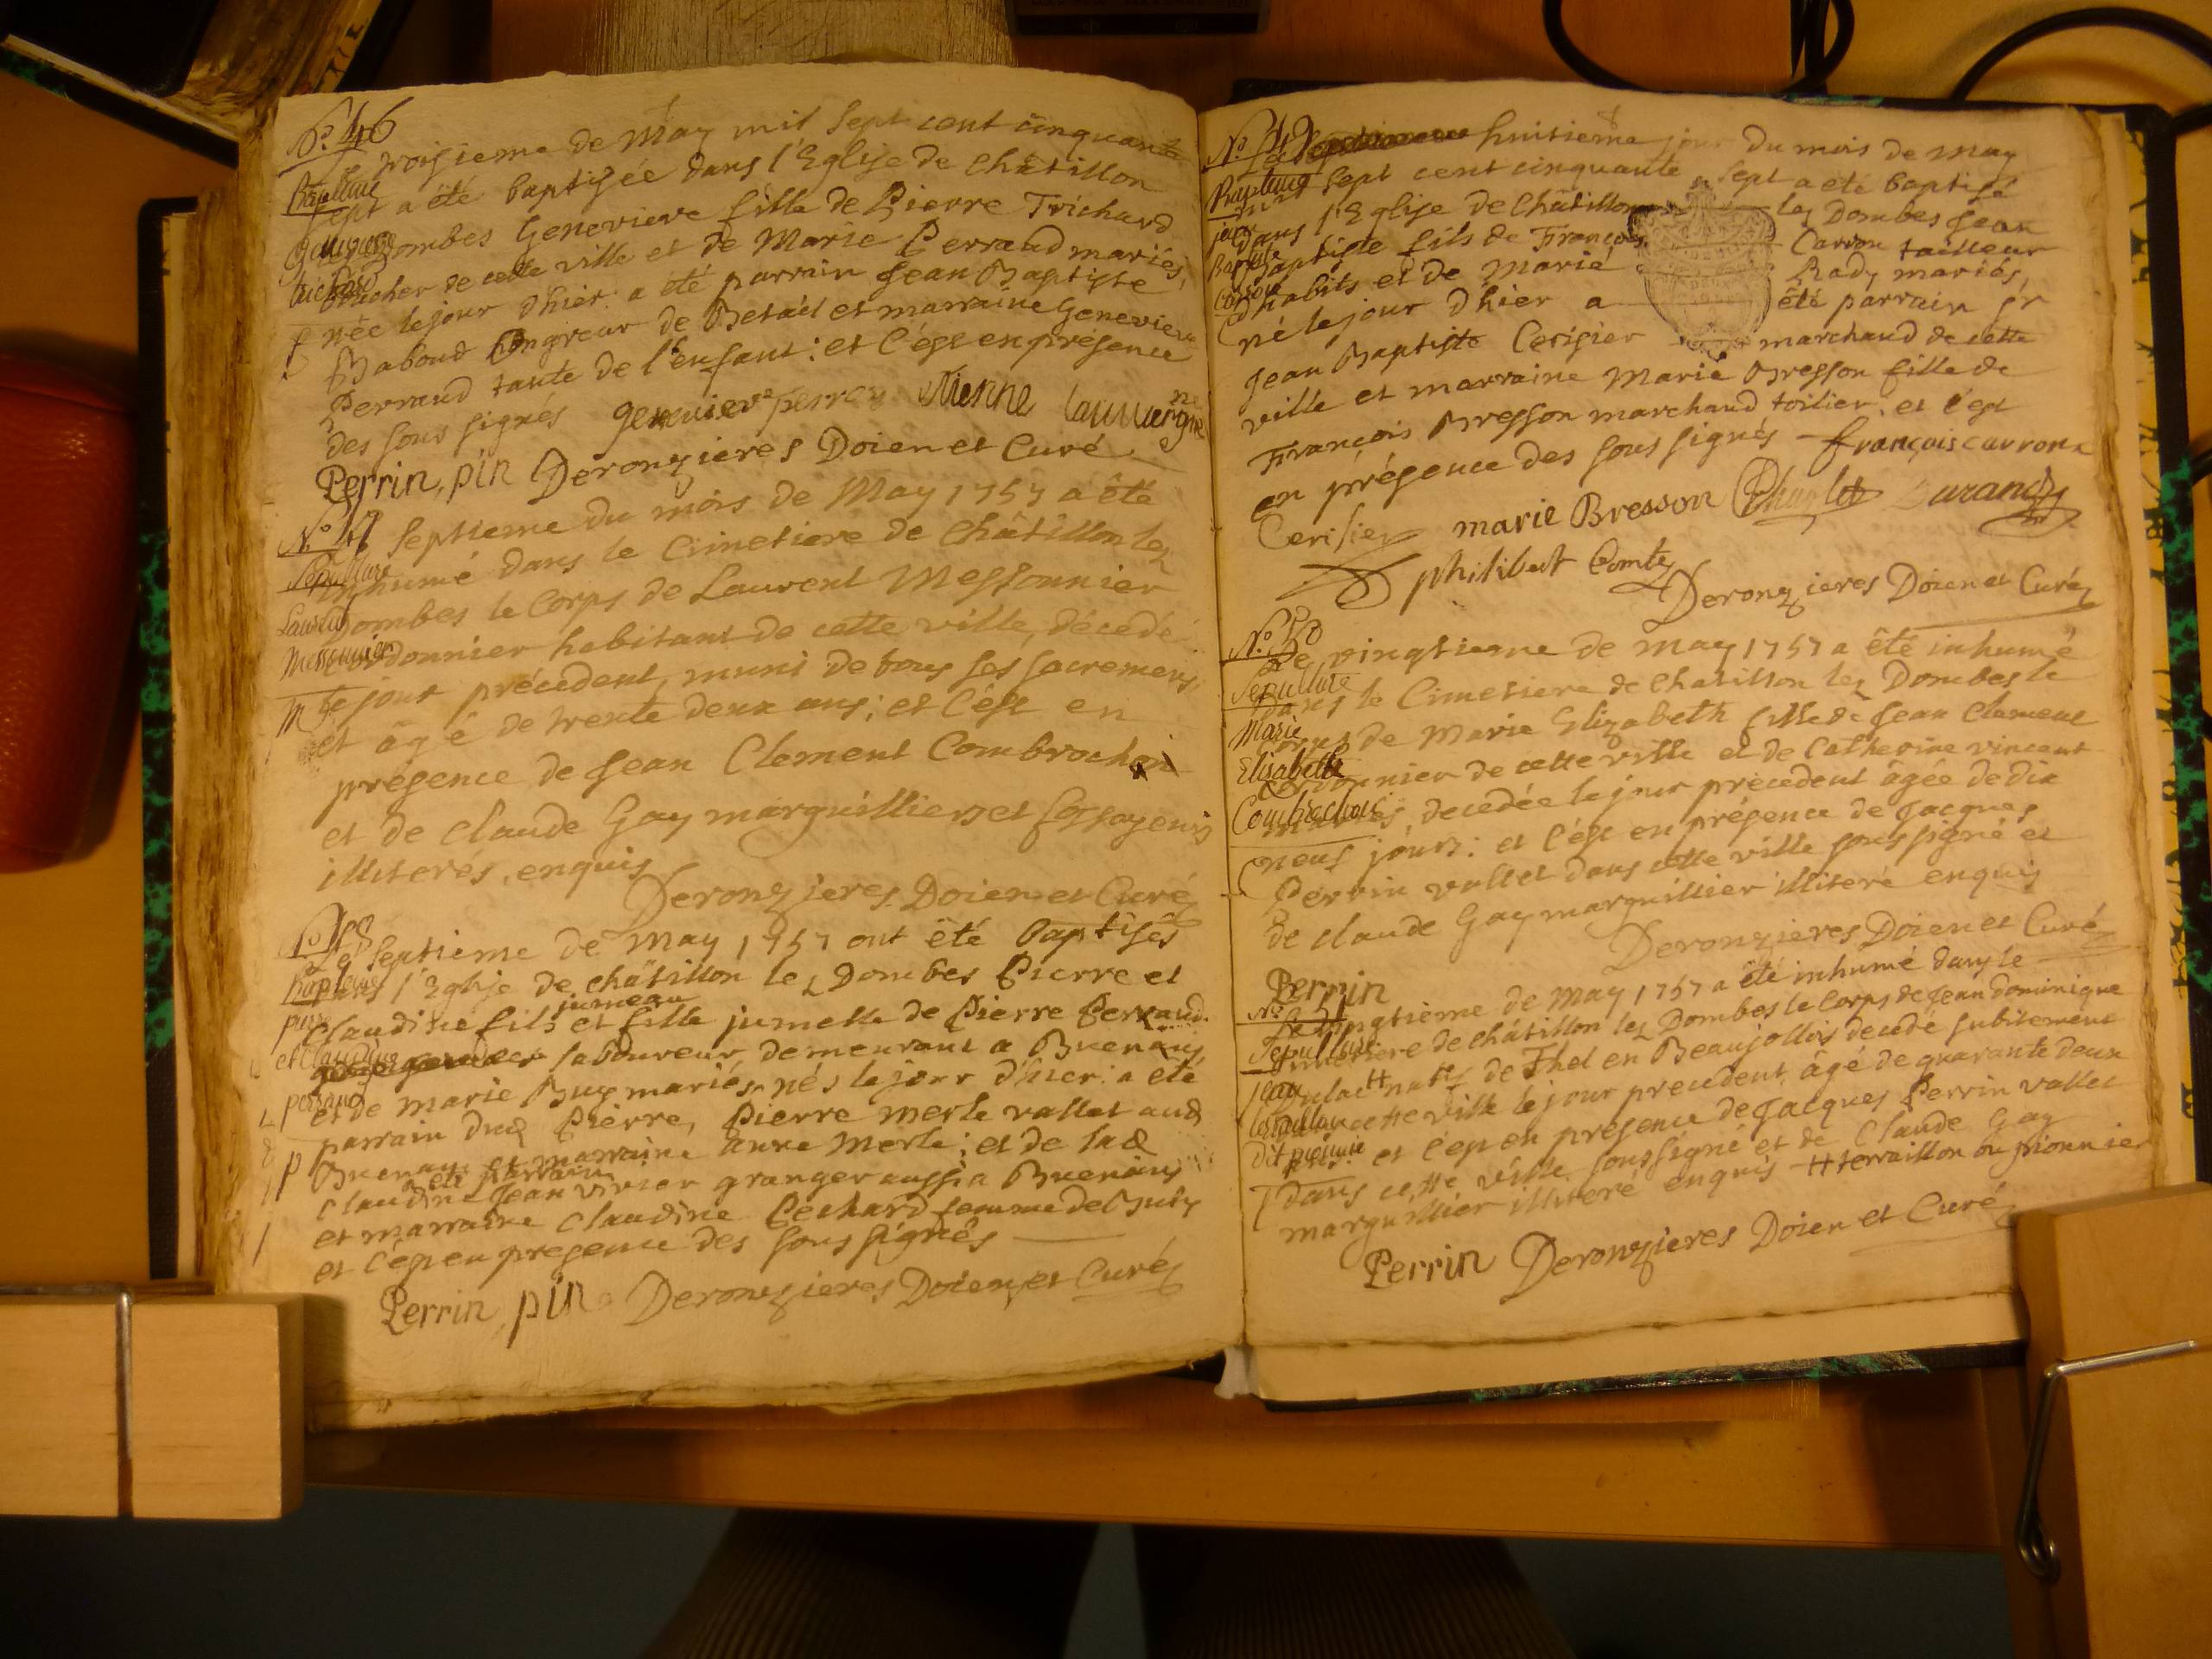 N.º 46
Le troisieme de May mil sept cent cinquante
Baptême
sept a été baptisée dans l'Eglise de Châtillon
Dombes Genevieve fille de Pierre Trichard
boucher de cette ville et de Marie Perraud mariés,
née le jour d'hier: a été parrain Jean Baptiste
Baboud de Betail et marraine Genevieve
Perraud tante de l'enfant: et c'est en présence
des sous signés genevieve perrau Etienne lauvergne
Perrin, pin Deronzieres Doien et Curé
N.º 47
septieme du mois de May 1757 a été
Sepulture
inhumé dans le Cimetiere de Châtillon lez
Dombes le Corps de Laurent Messonnier
Messonnier
cordonnier habitant de cette ville, décédé
le jour précédent, muni de tous ses sacremens,
M
et âgé de trente deux ans; et c'est en
présence de Jean Clement Combrochon
et de Claude Gay marguilliers et fossoyeurs
illiterés, enquis
Deronzieres Doien et Curé
N.º 48
Le septieme de May 1757 ont été baptisés
Baptême
dans l'Eglise de châtillon lez Dombes Pierre et
jumeau
Claudine fils et fille jumelle de Pierre Perraud
et Claudine
laboureur demeurant a Buenans
perraud
et de marie Buy mariés, nés le jour d'hier: a été
parrain dud Pierre, Pierre merle vallet aud
p
Buenans et marraine anne Merle; et de lad
a été parrain
Claudine Jean vivier granger aussi a Buenans
et marraine Claudine Pechard femme de
et c'est en presence des sous signés
Perrin, pin Deronzieres Doien et Curé
N.º 49
Le huitieme jour du mois de may
Baptême
mil sept cent cinquante sept a été baptisé
jean
dans l'Eglise de Châtillon lez Dombes Jean
Baptiste
Baptiste fils de François Carron tailleur
Carron
d'habits et de Marie Rady mariés,
né le jour d'hier a été parrain sr
Jean Baptiste Cerisier marchand de cette
ville et marraine Marie Bresson fille de
François Bresson marchand toilier. et c'est
en présence des sous signés françois carron
Cerisier marie Bresson Charlet Durand
philibert Comte
Deronzieres Doien et Curé
N.º 50
Le vingtieme de may 1757 a été inhumé
Sepulture
dans le Cimetiere de chatillon lez Dombes le
Marie
Corps de Marie Elizabeth fille de Jean Clement
Elisabeth
cordonnier de cette ville et de Catherine vincent
Combrochon
mariés, decedée le jour precedent âgée de dix
neuf jours: et c'est en présence de Jacques
Perrin vallet dans cette ville soussigné et
de claude Gay marguillier illiteré enquis
Deronzieres Doien et Curé
Perrin
N.º 51
Le vingtieme de May 1757 a été inhumé dans le
Sepulture
Cimetiere de châtillon lez Dombes le Corps de Jean dominique
jean
natif de Thel en Beaujollois decedé subitement
cette ville le jour precedent, âgé de quarante deux
dit
ans: et c'est en présence de Jacques Perrin vallet
dans cette ville soussigné et de Claude Gay
marguillier illiteré enquis ++ terraillon ou pionnier
Perrin Deronzieres Doien et Curé